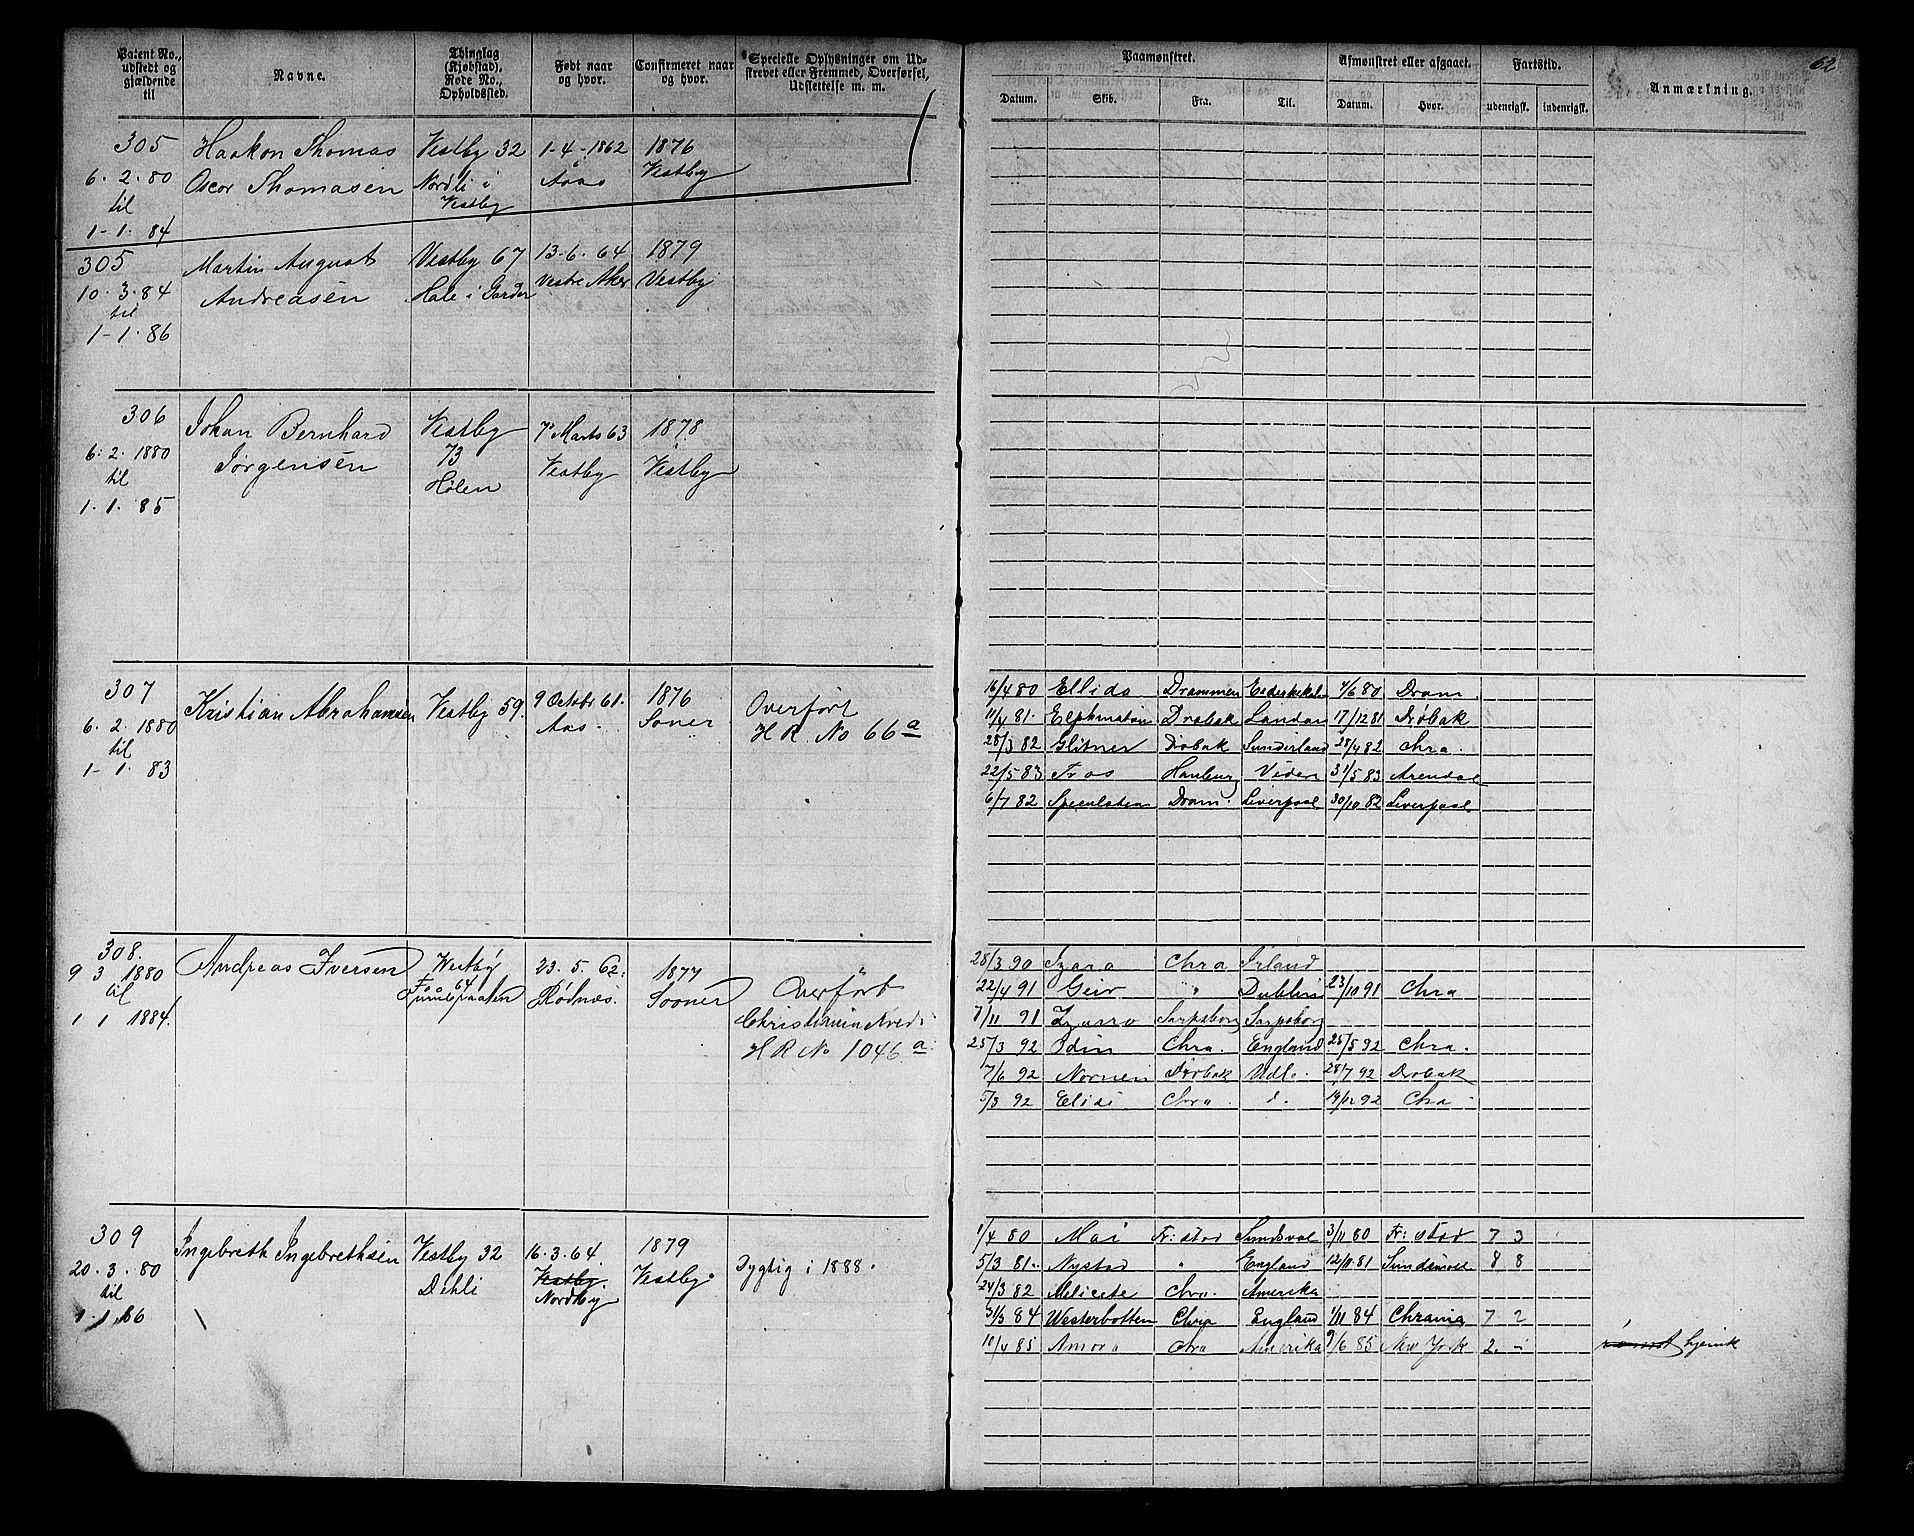 62
Patent No., udstedt og gjældende til
Navne.
Thinglag (Kjøbstad), Rode No., Opholdssted.
Født naar og hvor.
Confirmeret naar og hvor.
Specielle Oplysninger om Udstrevet eller Fremmed, Overførsel, Udslettelse m. m.
Paamønstret.
Afmønstret eller afgaaet.
Fartstid.
Anmærkning.
Datum. Skib. Fra. Til. Datum. Hvor. udenrigsk. indenrigsk.
305 Haakon Thomas Vestby 32 1-4-1862 1876
6. 2. 80 Oscar Thomasen Nordli i Aaas Vestby
til Vestby
1-1. 84
305 Martin August Vestby 67 13-6. 64 1879
10. 3. 84 Andreasen Hole i Garder Vestre Aker Vestby
til
1-1. 86
306 Johan Bernhard Vestby 7 Marts 63 1878
6. 2. 1880 Jørgensen 73 Vestby Vestby
til Hølen
1. 1. 85
307 Kristian Abrahamsen Vestby 59. 9 Octobr 61. 1876 Overført
6. 2. 1880 Aas Soner H R. No 66 a
til
1-1. 83
16/4 80 Ellida Drammen 4/6 80 Dram.
11/4 81. Drøbak London 17/12 81 Drøbak
28/3 82 Glitner Drøbak Sunderland 28/4 82 Chra.
22/5 83 Hamburg 31/5 83 Arendal
6/7 82 Speculation Dram. Liverpool 30/10 82 Liverpool
308. Andreas Iversen Westby 23. 5. 62. 1877 Overført
9 3 1880 64 Rødnæs. Sooner Christiania
til H R No 1046 a
1 1 1884.
28/3 90 Chra Irland
22/4 91 Geir " Dublin 23/10 91 Chra
7/11 91 Sarpsborg Sarpsborg
25/3 92 Odin Chra. England 25/5 92 Chra.
7/6 92 Nornen Drøbak Udl. 28/7 92 Drøbak
5/3 92 Elisi Chra. d. 14/12 92 Chra
309 Ingebreth Ingebrethsen Vestby 32 16. 3. 64 1879 Dygtig i 1888.
20. 3. 80 Dehli Vestby Vestby
til Nordby
1. 1. 86
1/4 80 Mai Fr: stad Sundsval 3/11 80 Fr: stad 7 3
5/3 81. Nystad " England 12/11 81 8 8
24/3 82 Chra. Amerika
31/3 84 Westerbotten Chra England 1/11 84 Chrania 7 2
10/4 85 Amora Chra Amerika 9/6 85 New York 2. - rømt hjemk